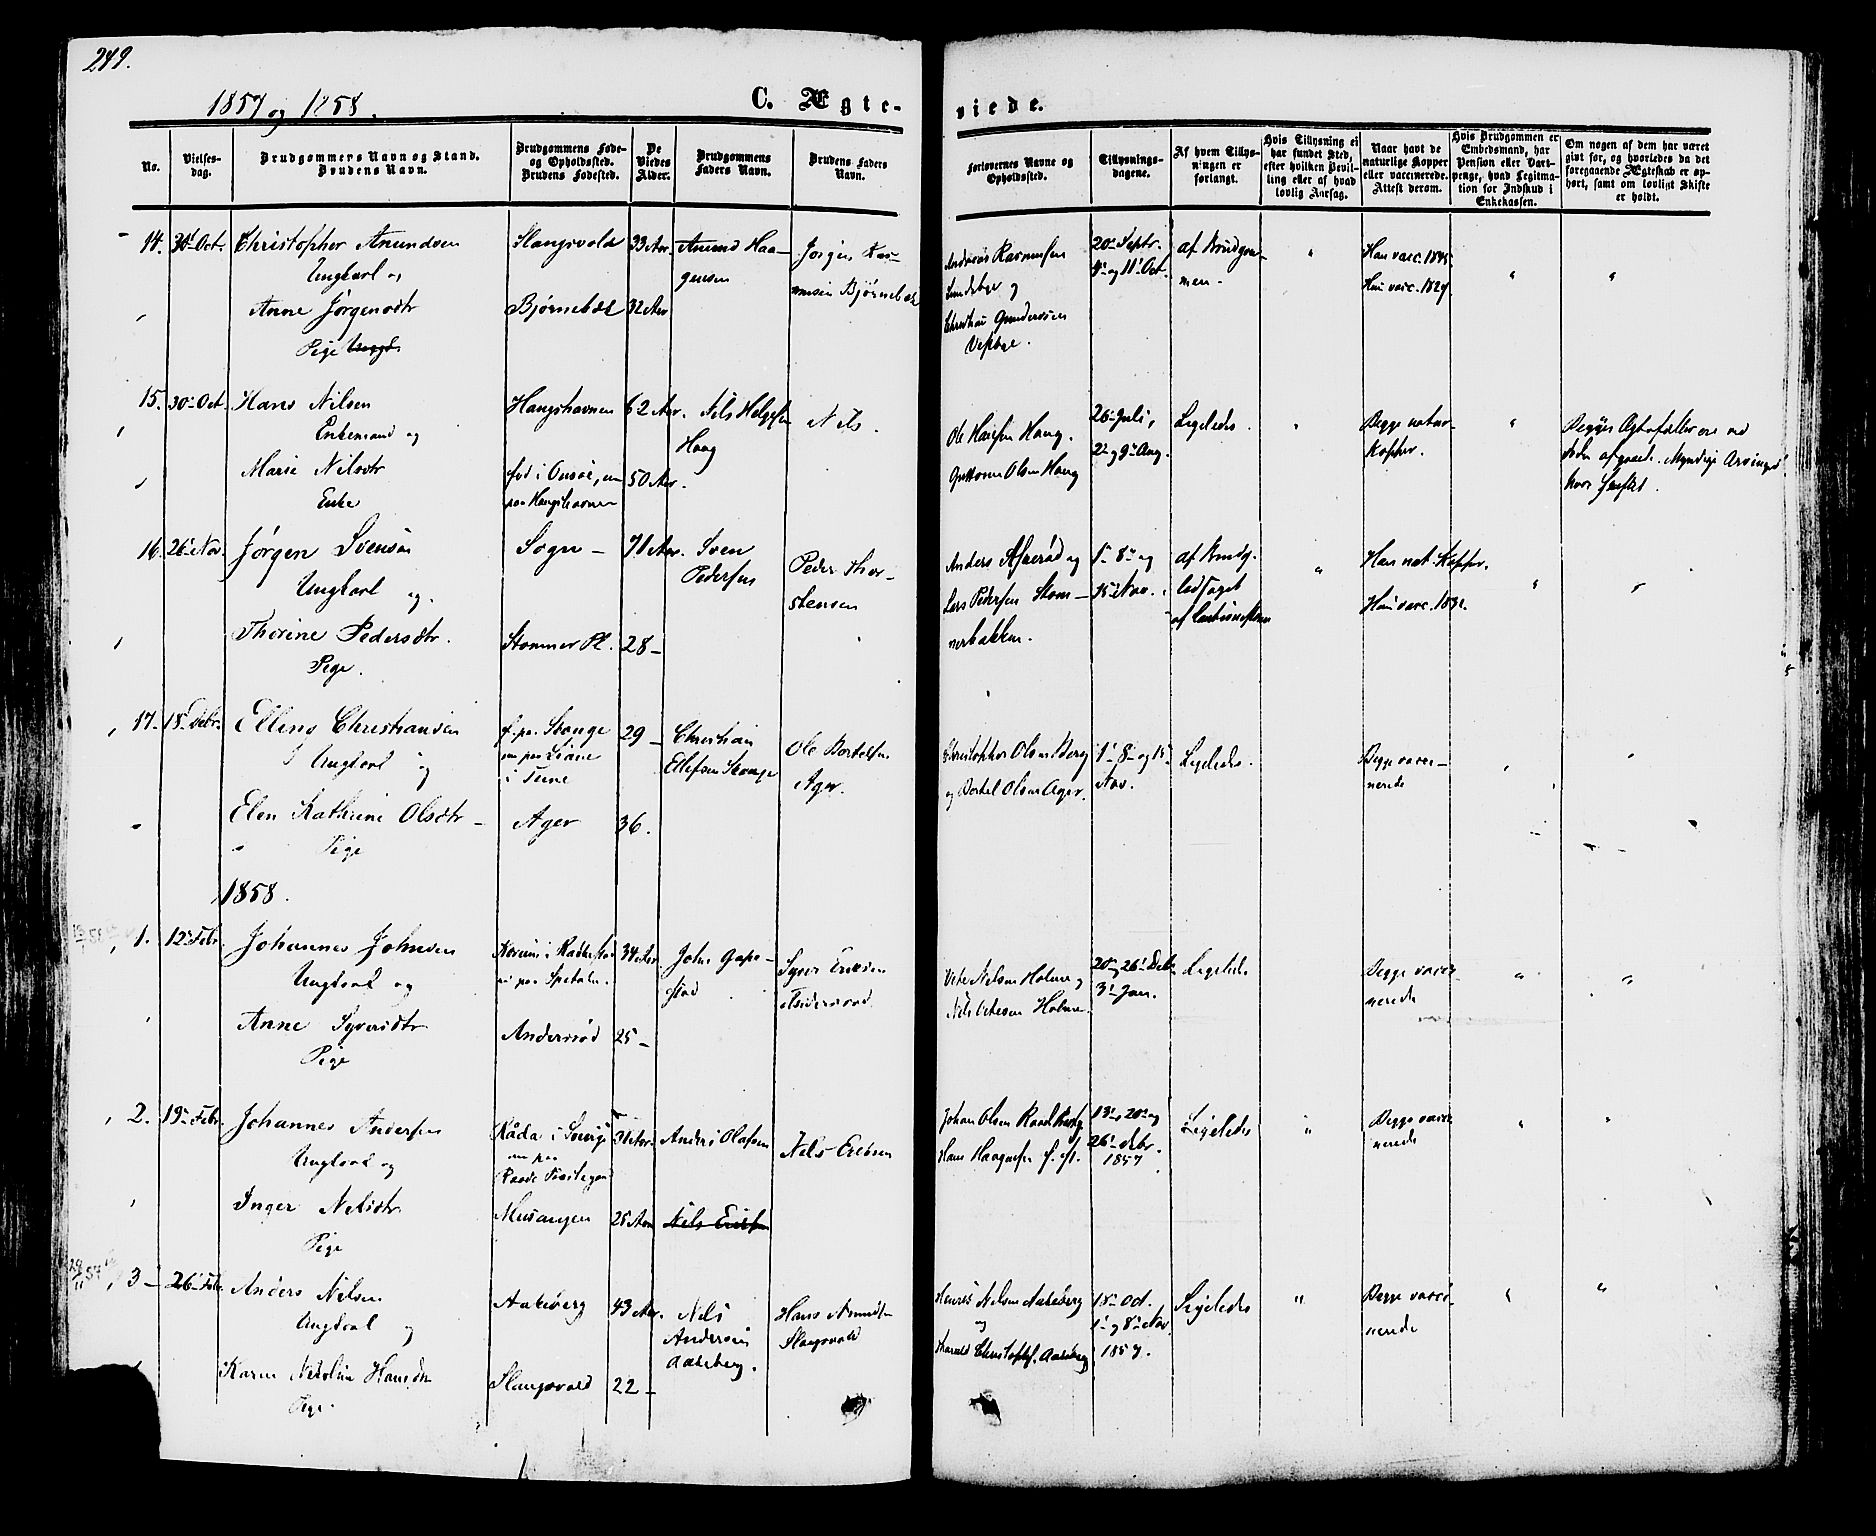 249.
1857 og 1858.
C. Ægte-
viede.
No.
Vielses-
dag.
Brudgommens Navn og Stand.
Brudens Navn.
Brudgommens Føde-
og Opholdssted.
Brudens Fødested.
De
Viedes
Alder.
Brudgommens
Faders Navn.
Brudens Faders
Navn.
Forlovernes Navne og
Opholdssted.
Tillysnings-
dagene.
Af hvem Tillys-
ningen er
forlangt.
Hvis Tillysning ei
har fundet Sted,
efter hvilken Bevil-
ling eller af hvad
lovlig Aarsag.
Naar havt de
naturlige Kopper
eller vaccinerede.
Attest derom.
Hvis Brudgommen er
Embedsmand, har
Pension eller Vart-
penge, hvad Legitima-
tion for Indskud i
Enkekassen.
Om nogen af dem har været
givt før, og hvorledes da det
foregaaende Ægteskab er op-
hørt, samt om lovligt Skifte
er holdt.
14. 30 Oct. Christopher Amundsen
Ungkarl og
Anne Jørgensdtr
Pige
Slangsvold 33 Aar
Bjørnebæk 32 Aar
Amund Haa-
gensen
Jørgen Ras-
mussen Bjørnebæk
Andreas Rasmussen
Sundbye og
Christian Gundersen
Vestbye.
20 Septr.
4 og 11 Oct.
af Brudgom-
men.
Han vacc. 1845
Hun vacc. 1827
15. 30 Oct. Hans Nilsen
Enkemand og
Marie Nilsdtr
Enke
Haugshavnen 62 Aar.
fød i Onsøe, nu 50 Aar.
paa Haugshavnen
Nils Helgesen
Haug
Nils.
Ole Hansen Haug.
Guttorm Olsen Haug
26 Juli,
2 og 9 Aug.
Ligeledes.
Begge natur.
Kopper.
Begges Ægtefæller ere ved
Døden afgaaet. Myndige Arvinger
16. 26 Nov. Jørgen Svensen
Ungkarl og
Thorine Pedersdtr.
Pige.
Sogn – 71 Aar.
Stommer Pl. 28 –
Sven
Pedersen
Peder Thor-
stensen
Anders og
Lars Pedersen Stom-
merbakken.
1 8 og
15 Nov.
af Brudg.
ledsaget
Han nat. Kopper.
Hun vacc. 1832.
17. 18 Debr. Elling Christiansen
Ungkarl og
Elen Kathrine Olsdtr –
Pige
f. paa Stange 29 –
nu paa
i Tune
Ager 36.
Christian
Ellefsen Stange
Ole Bertelsen
Ager.
Christopher Olsen Berg
og Bertel Olsen Ager.
1 8 og 15
Nov.
Ligeledes.
Begge vacci-
nerede
1858.
1. 12 Febr. Johannes Johnsen
Ungkarl og
Anne Syversdtr
Pige
i Rakkestad 34 Aar
nu paa Spetalen.
Andersrød 25 –
John Gape-
stad
Syver Eriksen
Andersrød
Nilsen Holme og
Nils Holme
20 og 26 Debr.
3 Jan.
Ligeledes
Begge vacci-
nerede
2. 19 Febr. Johannes Andersen
Ungkarl og
Inger Nilsdtr.
Pige
Råda i Sverige 31 Aar.
nu paa
Raade Præstegaard
Musangen 25 Aar
Anders Olafsen
Nils Eriksen
Nils Eriksen
Johan Olsen
Hans Haagensen
13, 20 og
26 Debr.
1857
Ligeledes
Begge vacci-
nerede
3 – 26 Febr. Anders Nilsen
Ungkarl og
Karen Nikoline Hansdtr
Pige.
Aakeberg 43 Aar.
Slangsvold 22 –
Nils
Andersen
Aakeberg.
Hans Amundsen
Slangsvold
Nilsen Aakeberg
og
Harald Christophs. Aakeberg
18 Oct.
1 og 8 Nov.
1857.
Ligeledes
Begge vacci-
nerede